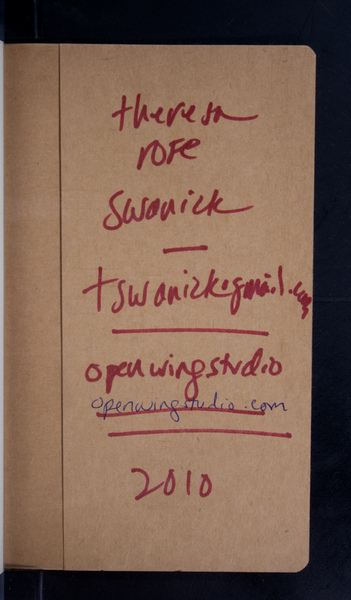 theresa
rose
swanick
tswanick@gmail.com
openwingstudio
openwingstudio.com
2010